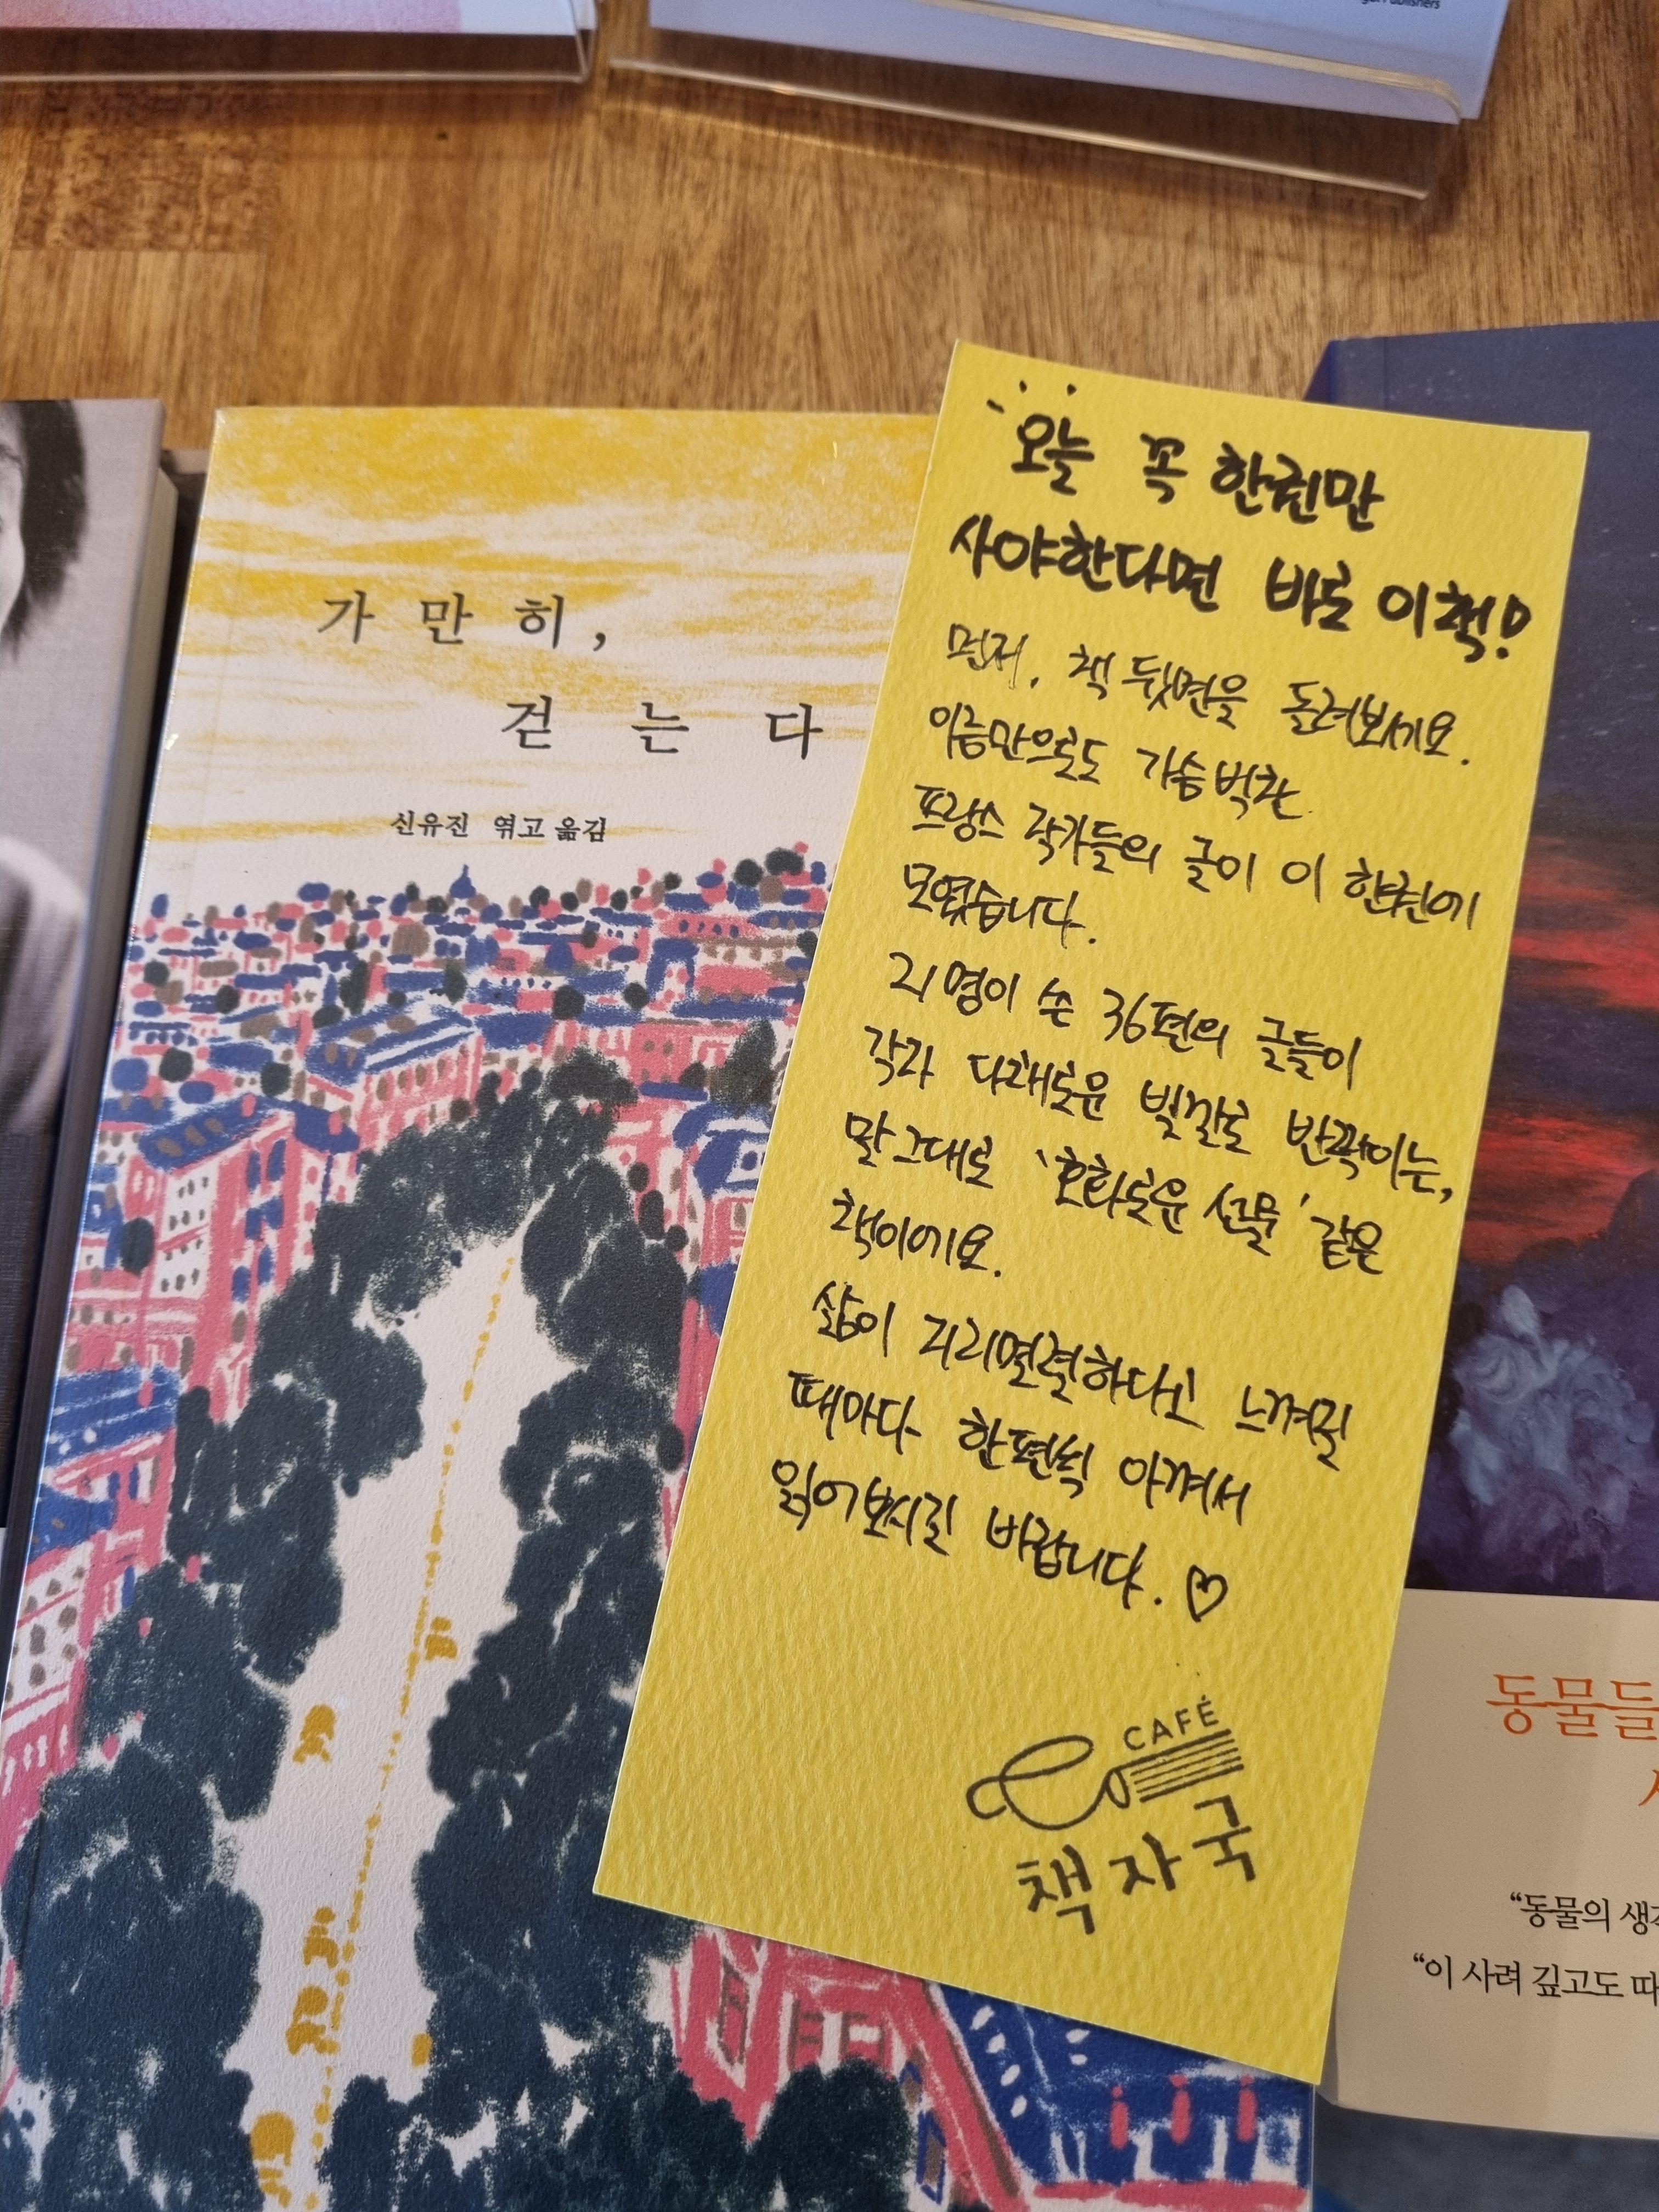 가만히,
걷는다
신유진 엮고 옮김
오늘 꼭 한권만
사야한다면 바로 이책!
먼저, 책 뒷면을 돌려보세요.
이름만으로도 가슴벅찬
프랑스 작가들의 글이 이 한권에
모였습니다.
21명이 쓴 36편의 글들이
각각 다채로운 빛깔로 반짝이는,
말그대로 '호화로운 선물' 같은
책이에요.
삶이 지리멸렬하다고 느껴질
때마다 한편씩 아껴서
읽어보시길 바랍니다. ♡
CAFÉ
책자국
동물들
"동물의 생각
"이 사려 깊고도 따